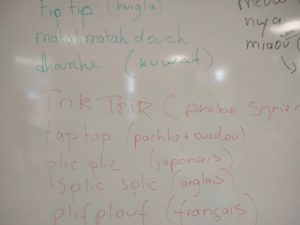 tip tip (bangla)
matah matah douch
dharche (kuwat)
Trik Trik (Arabe syrien
tap tap (pachto + ourdou)
plic plic (japonais)
splic splic (anglais)
plif plouf (français)
miaou